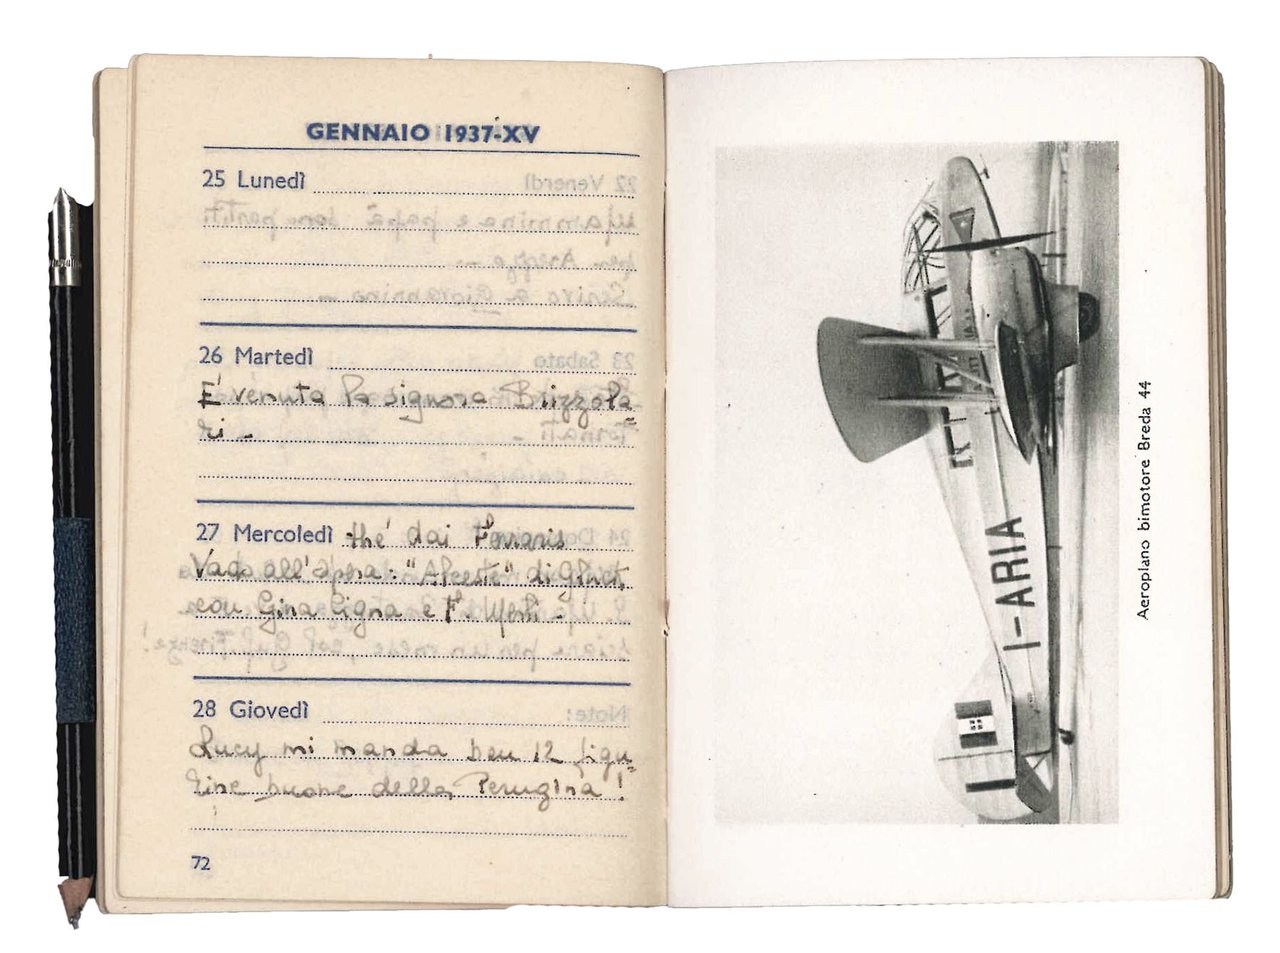 GENNAIO 1937-XV
25 Lunedì
26 Martedì
È venuta la signora Brizzola=
ri -
27 Mercoledì thé dai Ferraris
Vado all'opera: "Alceste" di Gluck,
con Gina Cigna e F. Merli -
28 Giovedì
Lucy mi manda ben 12 figu=
rine buone della Perugina!
72
I-ARIA
Aeroplano bimotore Breda 44